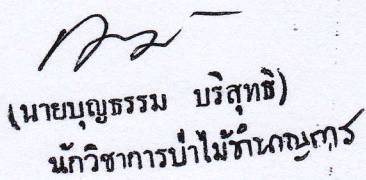 (นายบุญธรรม บริสุทธิ์)
นักวิชาการป่าไม้ชำนาญการ